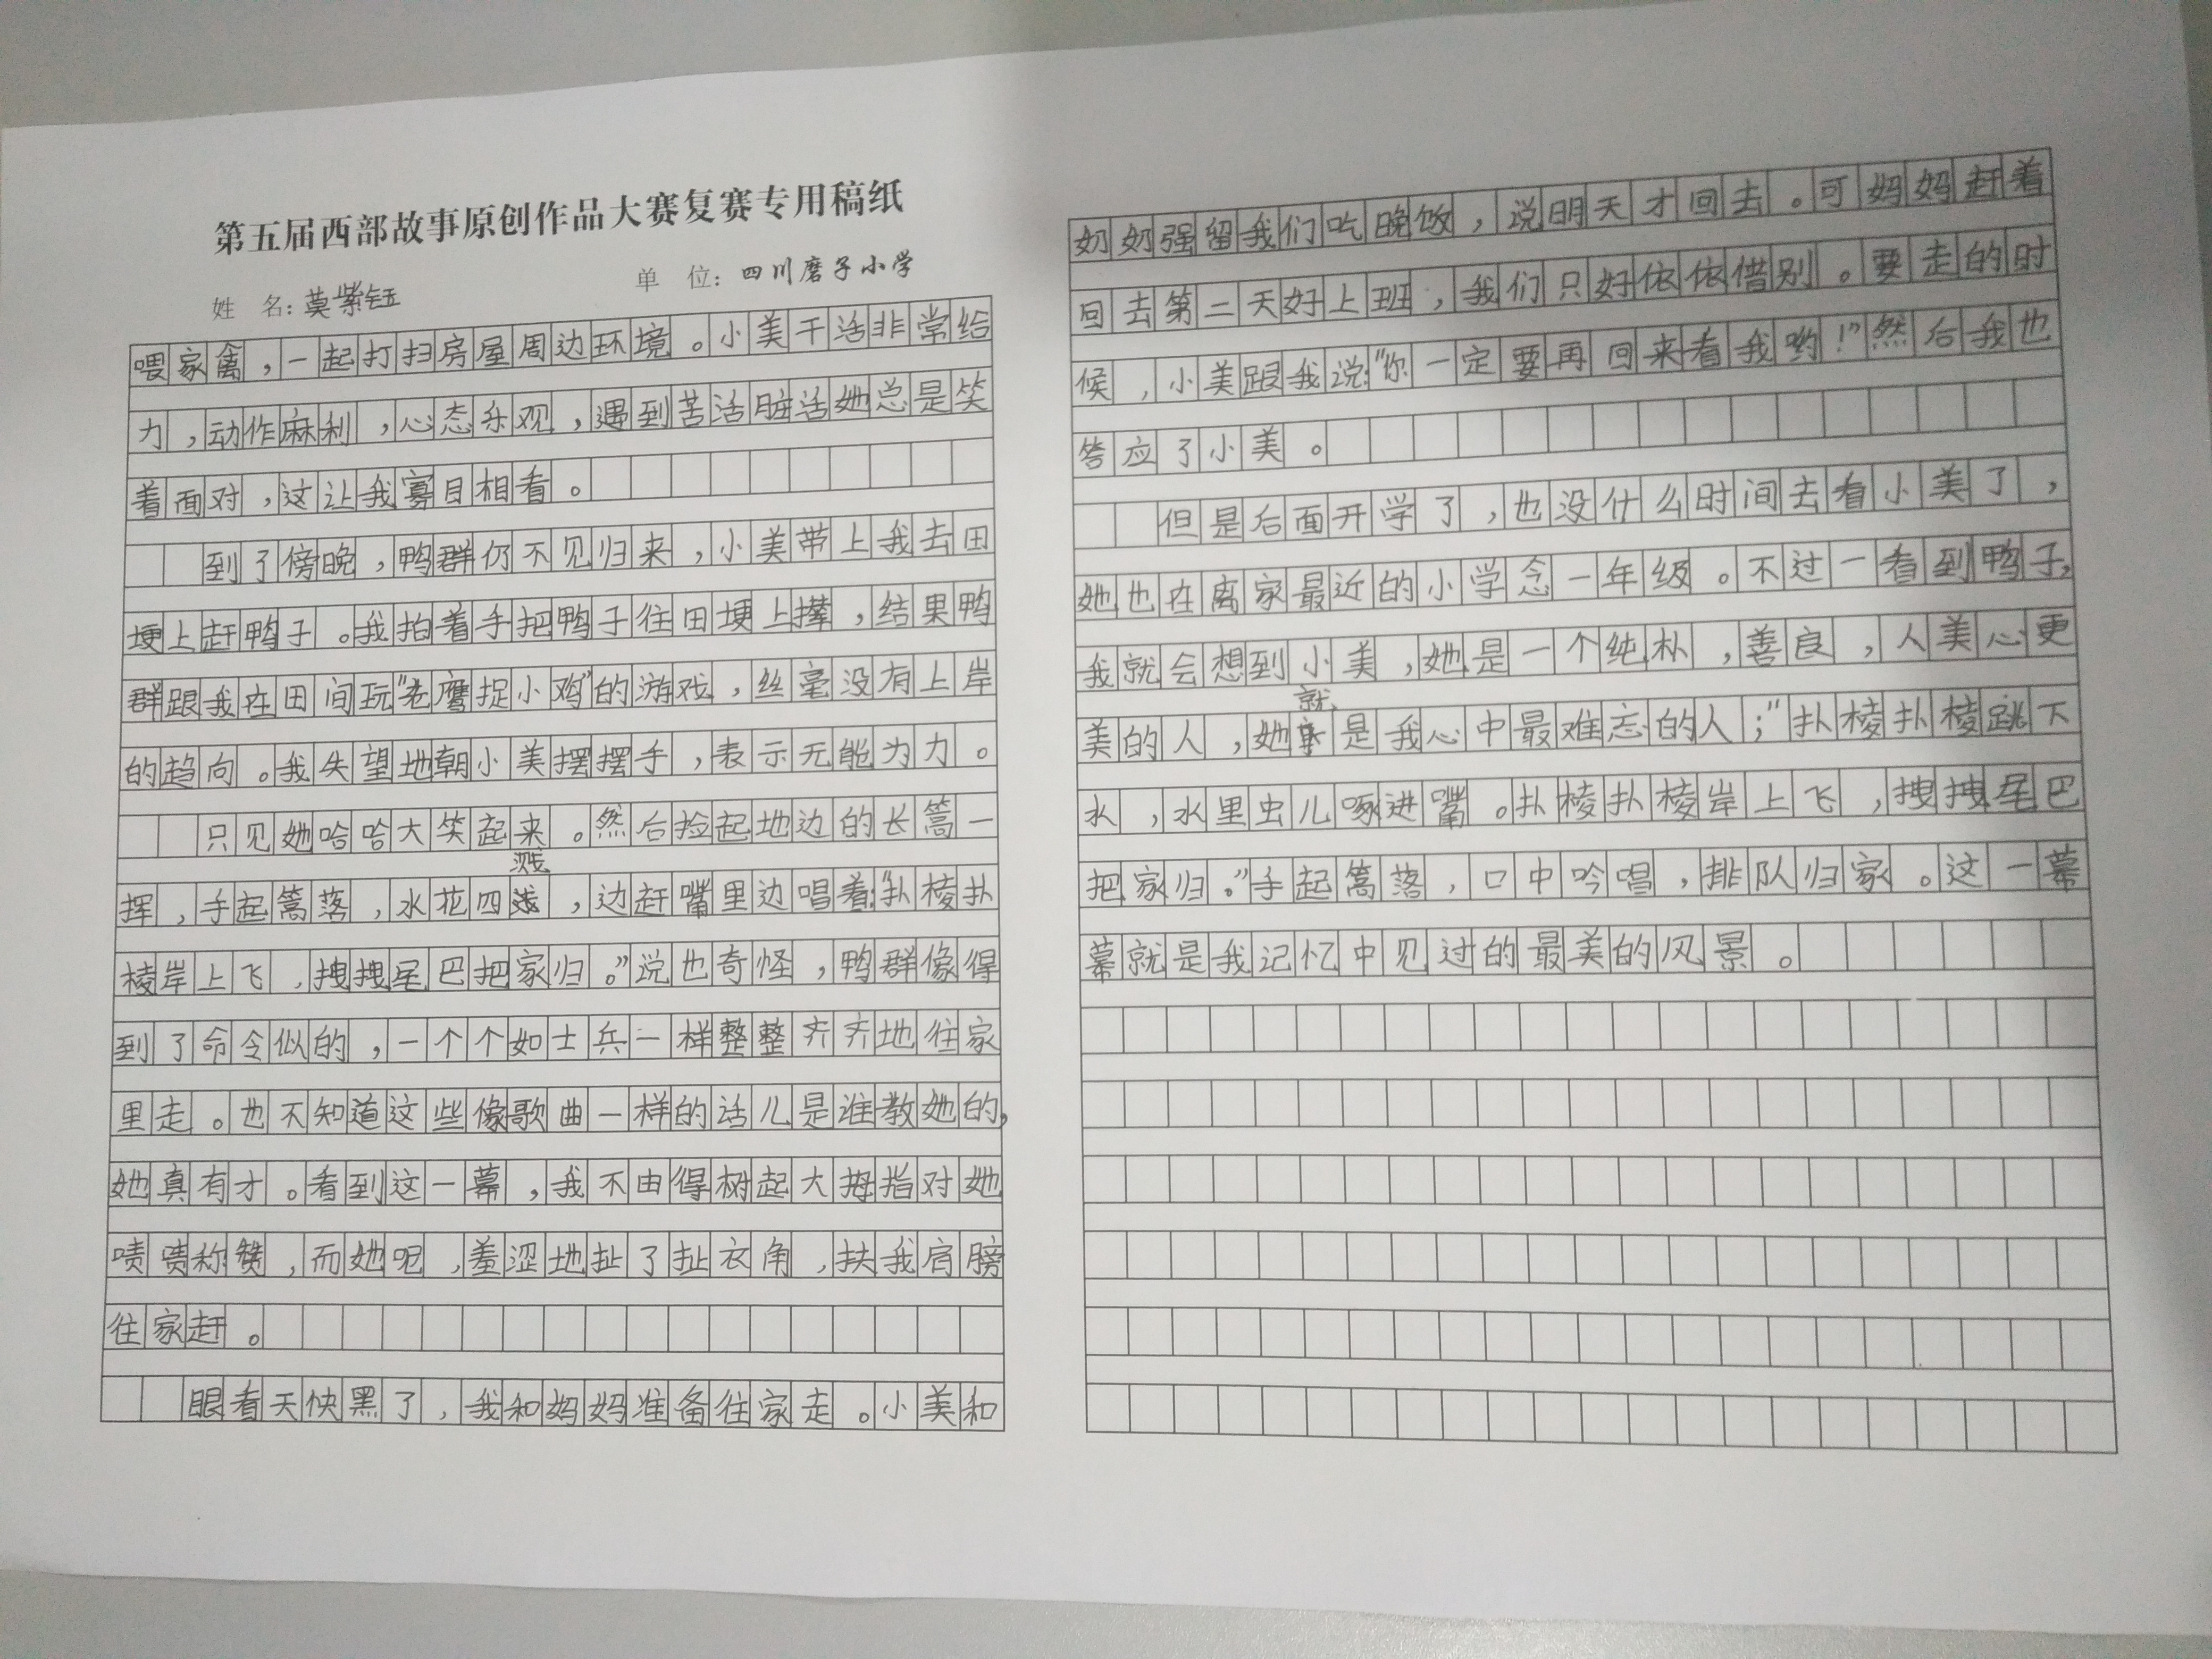 第五届西部故事原创作品大赛复赛专用稿纸
姓 名：莫紫钰 单 位：四川磨子小学
喂家禽，一起打扫房屋周边环境。小美干活非常给
力，动作麻利，心态乐观，遇到苦活脏活她总是笑
着面对，这让我寡目相看。
到了傍晚，鸭群仍不见归来，小美带上我去田
埂上赶鸭子。我拍着手把鸭子往田埂上撵，结果鸭
群跟我在田间玩“老鹰捉小鸡”的游戏，丝毫没有上岸
的趋向。我失望地朝小美摆摆手，表示无能为力。
只见她哈哈大笑起来。然后捡起地边的长篙一
挥，手起篙落，水花四溅，边赶嘴里边唱着：“扑棱扑
棱岸上飞，拽拽尾巴把家归。”说也奇怪，鸭群像得
到了命令似的，一个个如士兵一样整整齐齐地往家
里走。也不知道这些像歌曲一样的话儿是谁教她的，
她真有才。看到这一幕，我不由得树起大拇指对她
啧啧称赞，而她呢，羞涩地扯了扯衣角，扶我肩膀
往家赶。
眼看天快黑了，我和妈妈准备往家走。小美和
奶奶强留我们吃晚饭，说明天才回去。可妈妈赶着
回去第二天好上班，我们只好依依借别。要走的时
候，小美跟我说：“你一定要再回来看我哟！”然后我也
答应了小美。
但是后面开学了，也没什么时间去看小美了，
她也在离家最近的小学念一年级。不过一看到鸭子，
我就会想到小美，她是一个纯朴，善良，人美心更
美的人，她就是我心中最难忘的人；“扑棱扑棱跳下
水，水里虫儿啄进嘴。扑棱扑棱岸上飞，拽拽尾巴
把家归。”手起篙落，口中吟唱，排队归家。这一幕
幕就是我记忆中见过的最美的风景。